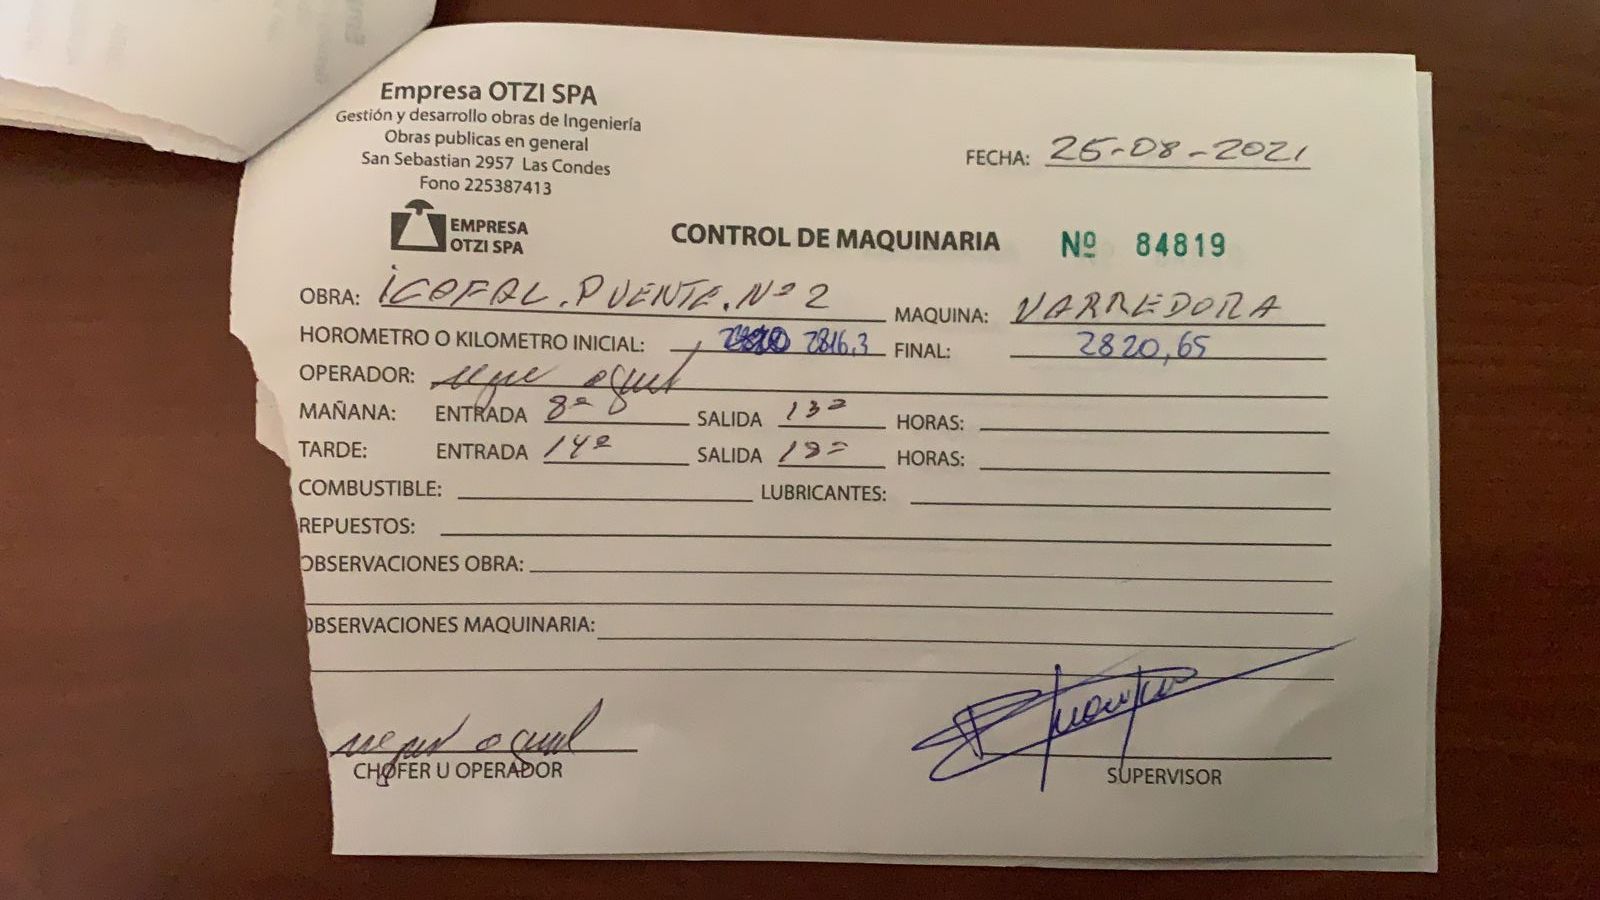 Empresa OTZI SPA
Gestión y desarrollo obras de Ingeniería
Obras publicas en general
San Sebastian 2957 Las Condes
Fono 225387413
FECHA: 25-08-2021
EMPRESA
OTZI SPA
CONTROL DE MAQUINARIA Nº 84819
OBRA: ICOFAL. PUENTE. Nº 2 MAQUINA: VARREDORA
HOROMETRO O KILOMETRO INICIAL: 2816,3 FINAL: 2820,65
OPERADOR:
MAÑANA: ENTRADA 8º SALIDA 13º HORAS:
TARDE: ENTRADA 14º SALIDA 18º HORAS:
COMBUSTIBLE: LUBRICANTES:
REPUESTOS:
OBSERVACIONES OBRA:
OBSERVACIONES MAQUINARIA:
CHOFER U OPERADOR
SUPERVISOR